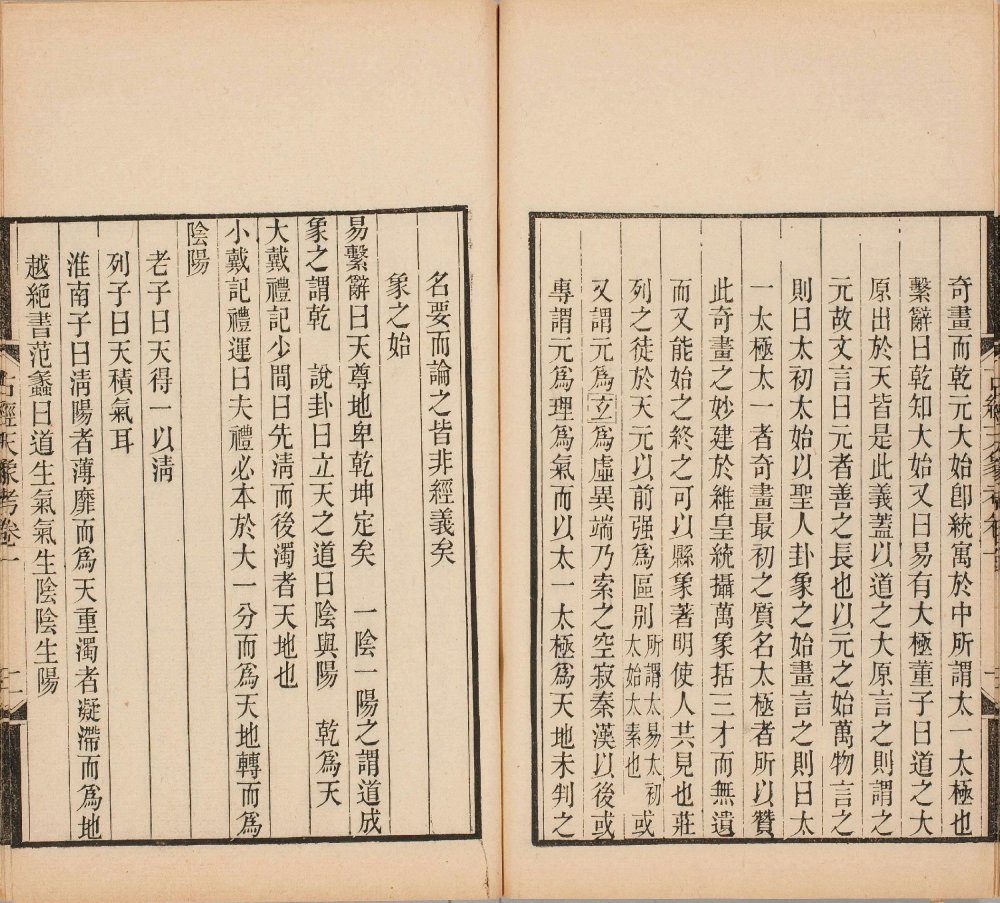 奇畫而乾元大始卽統寓於中所謂太一太極也
繫辭曰乾知大始又曰易有大極董子曰道之大
原出於天皆是此義蓋以道之大原言之則謂之
元故文言曰元者善之長也以元之始萬物言之
則曰太初太始以聖人卦象之始畫言之則曰太
一太極太一者奇畫最初之質名太極者所以贊
此奇畫之妙建於維皇統攝萬象括三才而無遺
而又能始之終之可以縣象著明使人共見也莊
列之徒於天元以前强爲區別所謂太易太初太始太素也或
又謂元爲𤣥爲虛異端乃索之空寂秦漢以後或
專謂元爲理爲氣而以太一太極爲天地未判之
古經天象考卷一
名要而論之皆非經義矣
象之始
易繫辭曰天尊地卑乾坤定矣 一陰一陽之謂道成
象之謂乾 說卦曰立天之道曰陰與陽 乾爲天
大戴禮記少間曰先淸而後濁者天地也
小戴記禮運曰夫禮必本於大一分而爲天地轉而爲
陰陽
老子曰天得一以淸
列子曰天積氣耳
淮南子曰淸陽者薄靡而爲天重濁者凝滯而爲地
越絶書范蠡曰道生氣氣生陰陰生陽
古經天象考卷一 二